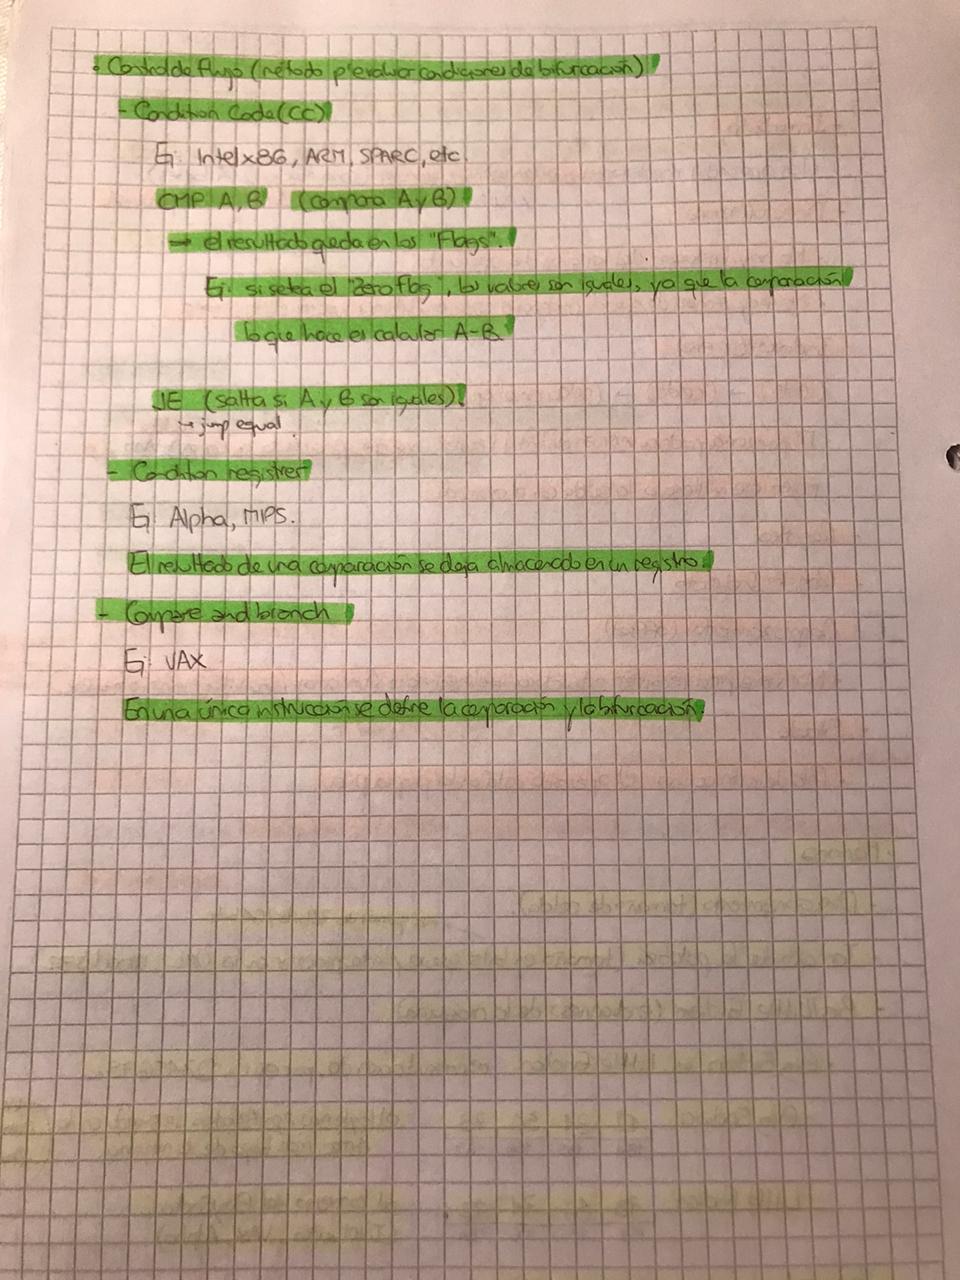 • Control de flujo (método p/evaluar condiciones de bifurcación)
- Condition Code (CC)
Ej: Intel x86, ARM, SPARC, etc.
CMP A, B (compara A y B)
→ el resultado queda en los "Flags".
Ej: si setea el "Zero flag", los valores son iguales, ya que la comparación
lo que hace es calcular A-B.
JE (salta si A y B son iguales).
↪ jump equal.
- Condition register
Ej: Alpha, MIPS.
El resultado de una comparación se deja almacenado en un registro.
- Compare and branch
Ej: VAX
En una única instrucción se define la comparación y la bifurcación.